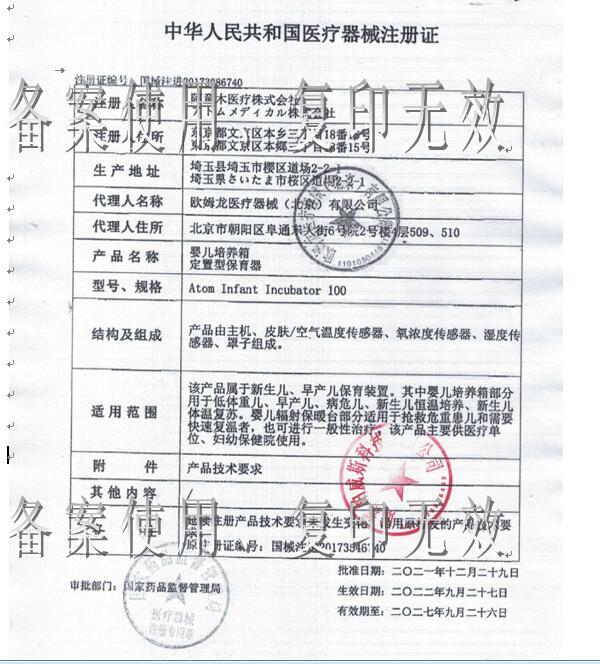 中华人民共和国医疗器械注册证
注册证编号：国械注进20173086740
备案使用 复印无效
注册人名称
医疗株式会社
アトムメディカル株式会社
注册人住所
东京都文京区本乡三丁目18番15号
東京都文京区本郷三丁目18番15号
生产地址
埼玉县埼玉市樱区道场2-2-1
埼玉県さいたま市桜区道場2-2-1
代理人名称
欧姆龙医疗器械（北京）有限公司
代理人住所
北京市朝阳区阜通东大街6号院2号楼4层509、510
产品名称
婴儿培养箱
定置型保育器
型号、规格
Atom Infant Incubator 100
结构及组成
产品由主机、皮肤/空气温度传感器、氧浓度传感器、湿度传
感器、罩子组成。
适用范围
该产品属于新生儿、早产儿保育装置。其中婴儿培养箱部分
用于低体重儿、早产儿、病危儿、新生儿恒温培养、新生儿
体温复苏。婴儿辐射保暖台部分适用于抢救危重患儿和需要
快速复温者，也可进行一般性治疗。该产品主要供医疗单
位、妇幼保健院使用。
附 件
产品技术要求
其他内容
/
备案使用 复印无效
延续注册产品技术要求未发生变化，沿用原核发的产品技术要
原注册证编号：国械注进20173546740
批准日期：二〇二一年十二月二十九日
审批部门：国家药品监督管理局
生效日期：二〇二二年九月二十七日
有效期至：二〇二七年九月二十六日
国家药品监督管理局
医疗器械
注册专用章